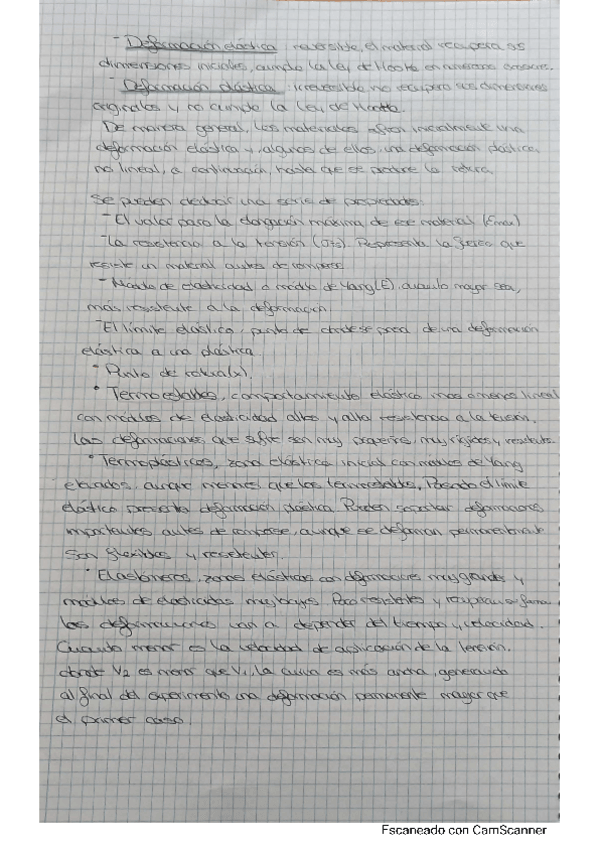 - Deformación elástica: reversible, el material recupera sus
dimensiones iniciales, cumple la Ley de Hooke en
- Deformación plástica: irreversible no recupera sus dimensiones
originales y no cumple la Ley de Hooke.
De manera general, los materiales sufren inicialmente una
deformación elástica y, algunos de ellos, una deformación plástica,
no lineal, a continuación, hasta que se produce la rotura.
Se pueden deducir una serie de propiedades:
- El valor para la elongación máxima de ese material (Emax)
- La resistencia a la tensión. Representa la fuerza que
resiste un material antes de romperse
- Módulo de elasticidad o módulo de Yang (E), cuanto mayor sea,
más resistente a la deformación
- El límite elástico, punto de donde se pasa de una deformación
elástica a una plástica
• Punto de rotura (x).
• Termoestables, comportamiento elástico más o menos lineal
con módulos de elasticidad altos y alta resistencia a la tensión.
Las deformaciones que sufre son muy pequeñas, muy rígidos y resistente.
• Termoplásticos, zona elástica inicial con módulos de Yang
elevados, aunque menores que los termoestables. Pasado el límite
elástico presenta deformación plástica. Pueden soportar deformaciones
importantes antes de romperse, aunque se deforman permanentemente
son flexibles y resistentes.
• Elastómeros, zonas elásticas con deformaciones muy grandes y
módulos de elasticidad muy bajos. Poco resistentes y recuperan su forma
las deformaciones van a depender del tiempo y velocidad.
Cuanto menor es la velocidad de aplicación de la tensión.
donde V2 es menor que V1, la curva es más ancha, generando
al final del experimento una deformación permanente mayor que
el primer caso
Escaneado con CamScanner